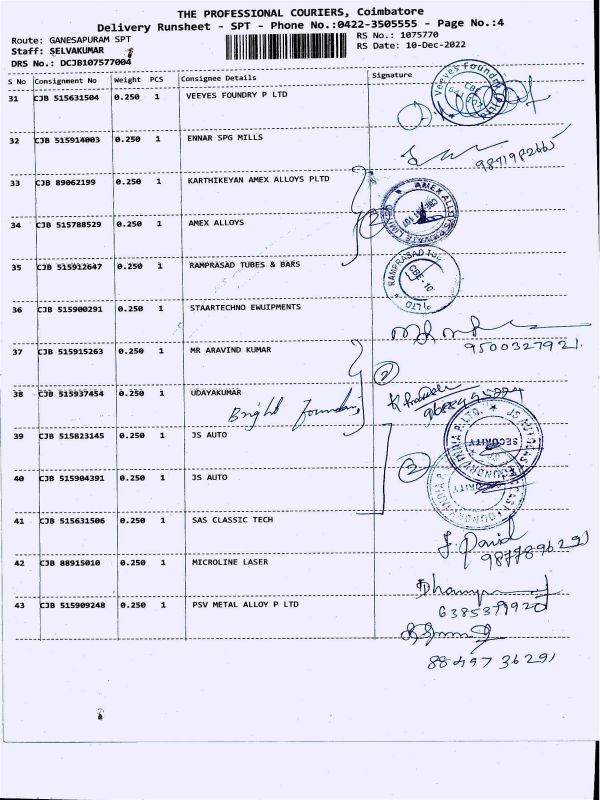 THE PROFESSIONAL COURIERS, Coimbatore
Delivery Runsheet - SPT - Phone No.:0422-3505555 - Page No.:4
Route: GANESAPURAM SPT
RS No.: 1075770
Staff: SELVAKUMAR
RS Date: 10-Dec-2022
DRS No.: DCJB107577004
S No Consignment No Weight PCS Consignee Details Signature
31 CJB 515631504 0.250 1 VEEYES FOUNDRY P LTD
32 CJB 515914003 0.250 1 ENNAR SPG MILLS
9871982665
33 CJB 89062199 0.250 1 KARTHIKEYAN AMEX ALLOYS PLTD
34 CJB 515788529 0.250 1 AMEX ALLOYS
2
AMEX ALLOYS PRIVATE LIMITED
35 CJB 515912647 0.250 1 RAMPRASAD TUBES & BARS
RAMPRASAD
CBE
36 CJB 515900291 0.250 1 STAARTECHNO EWUIPMENTS
9500327921
37 CJB 515915263 0.250 1 MR ARAVIND KUMAR
2
38 CJB 515937454 0.250 1 UDAYAKUMAR
Bright
39 CJB 515823145 0.250 1 JS AUTO
SECURITY
2
40 CJB 515904391 0.250 1 JS AUTO
41 CJB 515631506 0.250 1 SAS CLASSIC TECH
J. David
9877896291
42 CJB 88915010 0.250 1 MICROLINE LASER
6385379920
43 CJB 515909248 0.250 1 PSV METAL ALLOY P LTD
8849736291